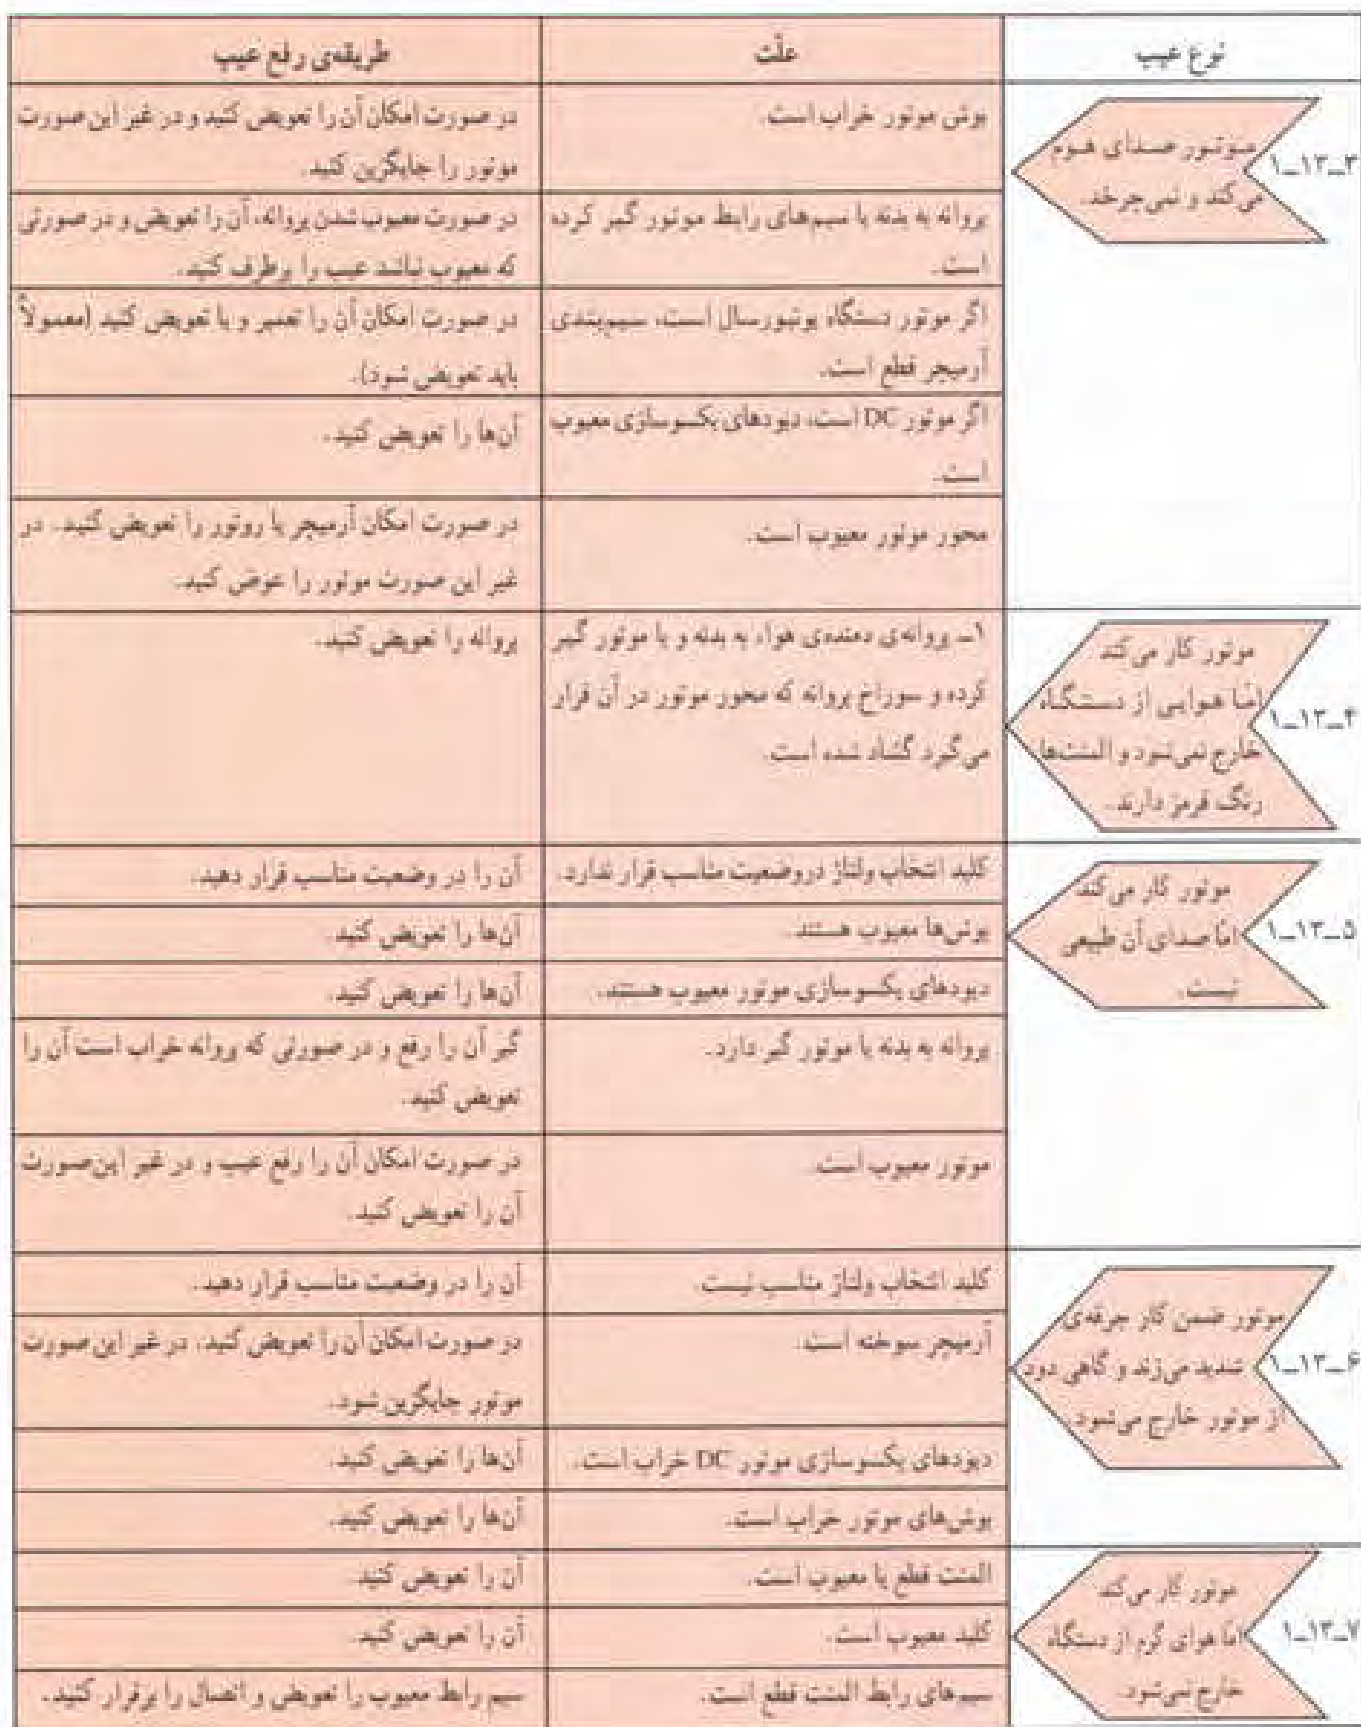 نوع عیب
علّت
طریقه‌ی رفع عیب
۳ــ۱۳ــ۱
موتور صدای هوم
می‌کند و نمی‌چرخد.
بوش موتور خراب است.
در صورت امکان آن را تعویض کنید و در غیر این صورت
موتور را جایگزین کنید.
پروانه به بدنه یا سیم‌های رابط موتور گیر کرده
است.
در صورت معیوب شدن پروانه، آن را تعویض و در صورتی
که معیوب نباشد عیب را برطرف کنید.
اگر موتور دستگاه یونیورسال است، سیم‌بندی
آرمیچر قطع است.
در صورت امکان آن را تعمیر و یا تعویض کنید (معمولاً
باید تعویض شود).
اگر موتور DC است، دیودهای یکسوسازی معیوب
است.
آن‌ها را تعویض کنید.
محور موتور معیوب است.
در صورت امکان آرمیچر یا روتور را تعویض کنید. در
غیر این صورت موتور را عوض کنید.
۴ــ۱۳ــ۱
موتور کار می‌کند
امّا هوایی از دستگاه
خارج نمی‌شود و المنت‌ها
رنگ قرمز دارند.
۱ــ پروانه‌ی دمنده‌ی هوا، به بدنه و یا موتور گیر
کرده و سوراخ پروانه که محور موتور در آن قرار
می‌گیرد گشاد شده است.
پروانه را تعویض کنید.
۵ــ۱۳ــ۱
موتور کار می‌کند
امّا صدای آن طبیعی
نیست.
کلید انتخاب ولتاژ در وضعیت مناسب قرار ندارد.
آن را در وضعیت مناسب قرار دهید.
بوش‌ها معیوب هستند.
آن‌ها را تعویض کنید.
دیودهای یکسوسازی موتور معیوب هستند.
آن‌ها را تعویض کنید.
پروانه به بدنه یا موتور گیر دارد.
گیر آن را رفع و در صورتی که پروانه خراب است آن را
تعویض کنید.
موتور معیوب است.
در صورت امکان آن را رفع عیب و در غیر این‌صورت
آن را تعویض کنید.
۶ــ۱۳ــ۱
موتور ضمن کار جرقه‌ی
شدید می‌زند و گاهی دود
از موتور خارج می‌شود
کلید انتخاب ولتاژ مناسب نیست.
آن را در وضعیت مناسب قرار دهید.
آرمیچر سوخته است.
در صورت امکان آن را تعویض کنید، در غیر این صورت
موتور جایگزین شود.
دیودهای یکسوسازی موتور DC خراب است.
آن‌ها را تعویض کنید.
بوش‌های موتور خراب است.
آن‌ها را تعویض کنید.
۷ــ۱۳ــ۱
موتور کار می‌کند
امّا هوای گرم از دستگاه
خارج نمی‌شود.
المنت قطع یا معیوب است.
آن را تعویض کنید
کلید معیوب است.
آن را تعویض کنید.
سیم‌های رابط المنت قطع است.
سیم رابط معیوب را تعویض و اتصال را برقرار کنید.